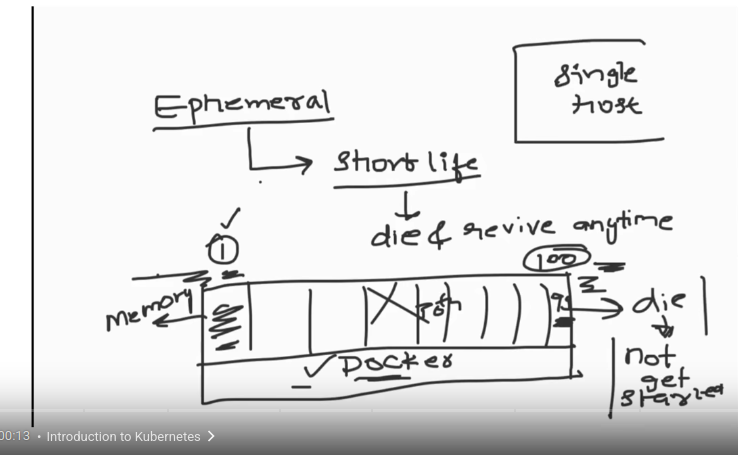 Single
host
Ephemeral
short life
die & revive anytime
1
100
Memory
99
die
not
get
started
Docker
00:13 • Introduction to Kubernetes